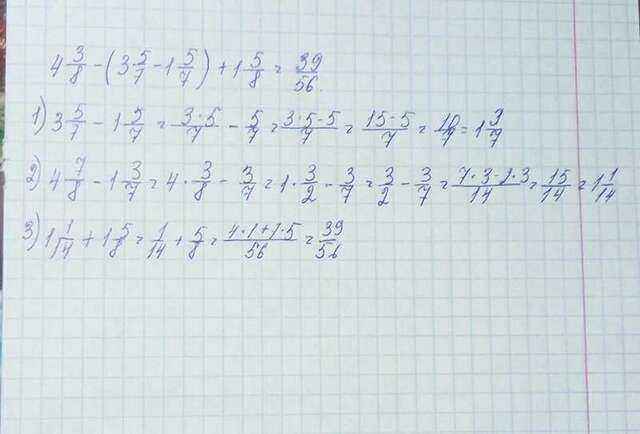 4 3/8 - (3 5/7 - 1 5/7) + 1 5/8 = 39/56.
1) 3 5/7 - 1 5/7 = 3·5/7 - 5/7 = 3·5-5/7 = 15-5/7 = 10/7 = 1 3/7
2) 4 7/8 - 1 3/7 = 4 · 3/8 - 3/7 = 1 · 3/2 - 3/7 = 3/2 - 3/7 = 7·3-2·3/14 = 15/14 = 1 1/14
3) 1 1/14 + 1 5/8 = 1/14 + 5/8 = 4·1+7·5/56 = 39/56